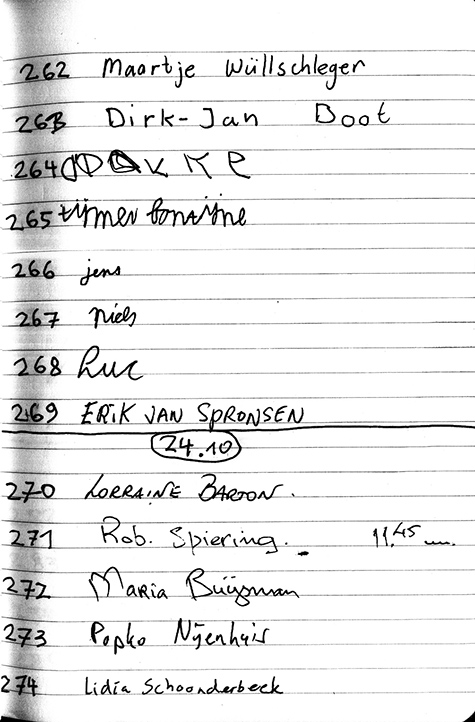 262 Maartje Wüllschleger
263 Dirk-Jan Boot
264
265 tijmen bontijne
266 jens
267 niels
268 Luc
269 ERIK JAN SPRONSEN
24.10
270 LORRAINE BARTON.
271 Rob. Spiering. 11.45
272 Maria Buijsman
273 Popko Nijenhuis
274 Lidia Schoonderbeek